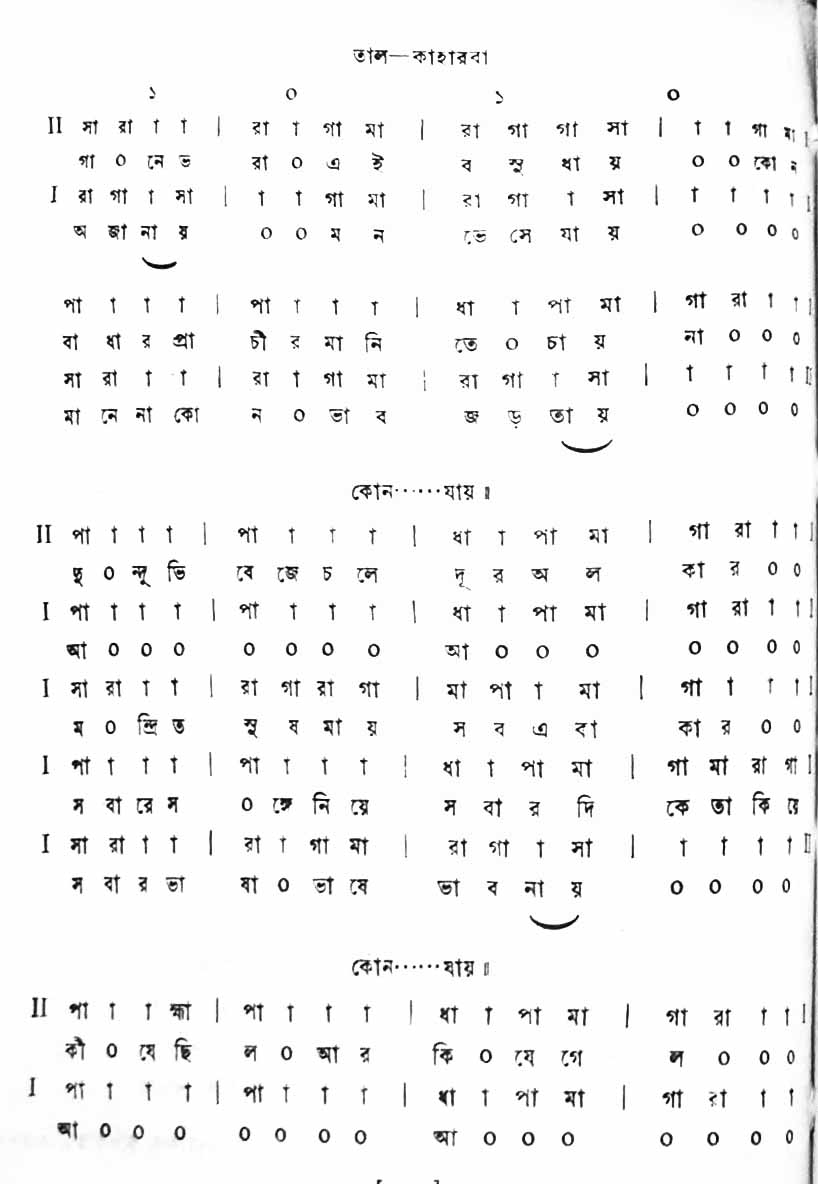 তাল—কাহারবা
১ ০ ১ ০
II সা রা া া | রা া গা মা | রা গা গা সা | া া গা মা I
গা ০ নে ভ রা ০ এ ই ব সু ধা য় ০ ০ কো ন
I রা গা া সা | া া গা মা | রা গা া সা | া া া া I
অ জা না য় ০ ০ ম ন ভে সে যা য় ০ ০ ০ ০
পা া া া | পা া া া | ধা া পা মা | গা রা া া I
বা ধা র প্রা চী র মা নি তে ০ চা য় না ০ ০ ০
সা রা া া | রা া গা মা | রা গা া সা | া া া া II
মা নে না কো ন ০ ভা ব জ ড় তা য় ০ ০ ০ ০
কোন······যায় ॥
II পা া া া | পা া া া | ধা া পা মা | গা রা া া I
দু ০ ন্দু ভি বে জে চ লে দূ র অ ল কা র ০ ০
I পা া া া | পা া া া | ধা া পা মা | গা রা া া I
আ ০ ০ ০ ০ ০ ০ ০ আ ০ ০ ০ ০ ০ ০ ০
I সা রা া া | রা গা রা গা | মা পা া মা | গা া া া I
ম ০ ন্দ্রি ত সু ষ মা য় স ব এ বা কা র ০ ০
I পা া া া | পা া া া | ধা া পা মা | গা মা রা গা I
স বা রে স ০ ঙ্গে নি য়ে স বা র দি কে তা কি য়ে
I সা রা া া | রা া গা মা | রা গা া সা | া া া া II
স বা র ভা ষা ০ ভা ষে ভা ব না য় ০ ০ ০ ০
কোন······যায় ॥
II পা া া হ্মা | পা া া া | ধা া পা মা | গা রা া া I
কী ০ যে ছি ল ০ আ র কি ০ যে গে ল ০ ০ ০
I পা া া া | পা া া া | ধা া পা মা | গা রা া া
আ ০ ০ ০ ০ ০ ০ ০ আ ০ ০ ০ ০ ০ ০ ০